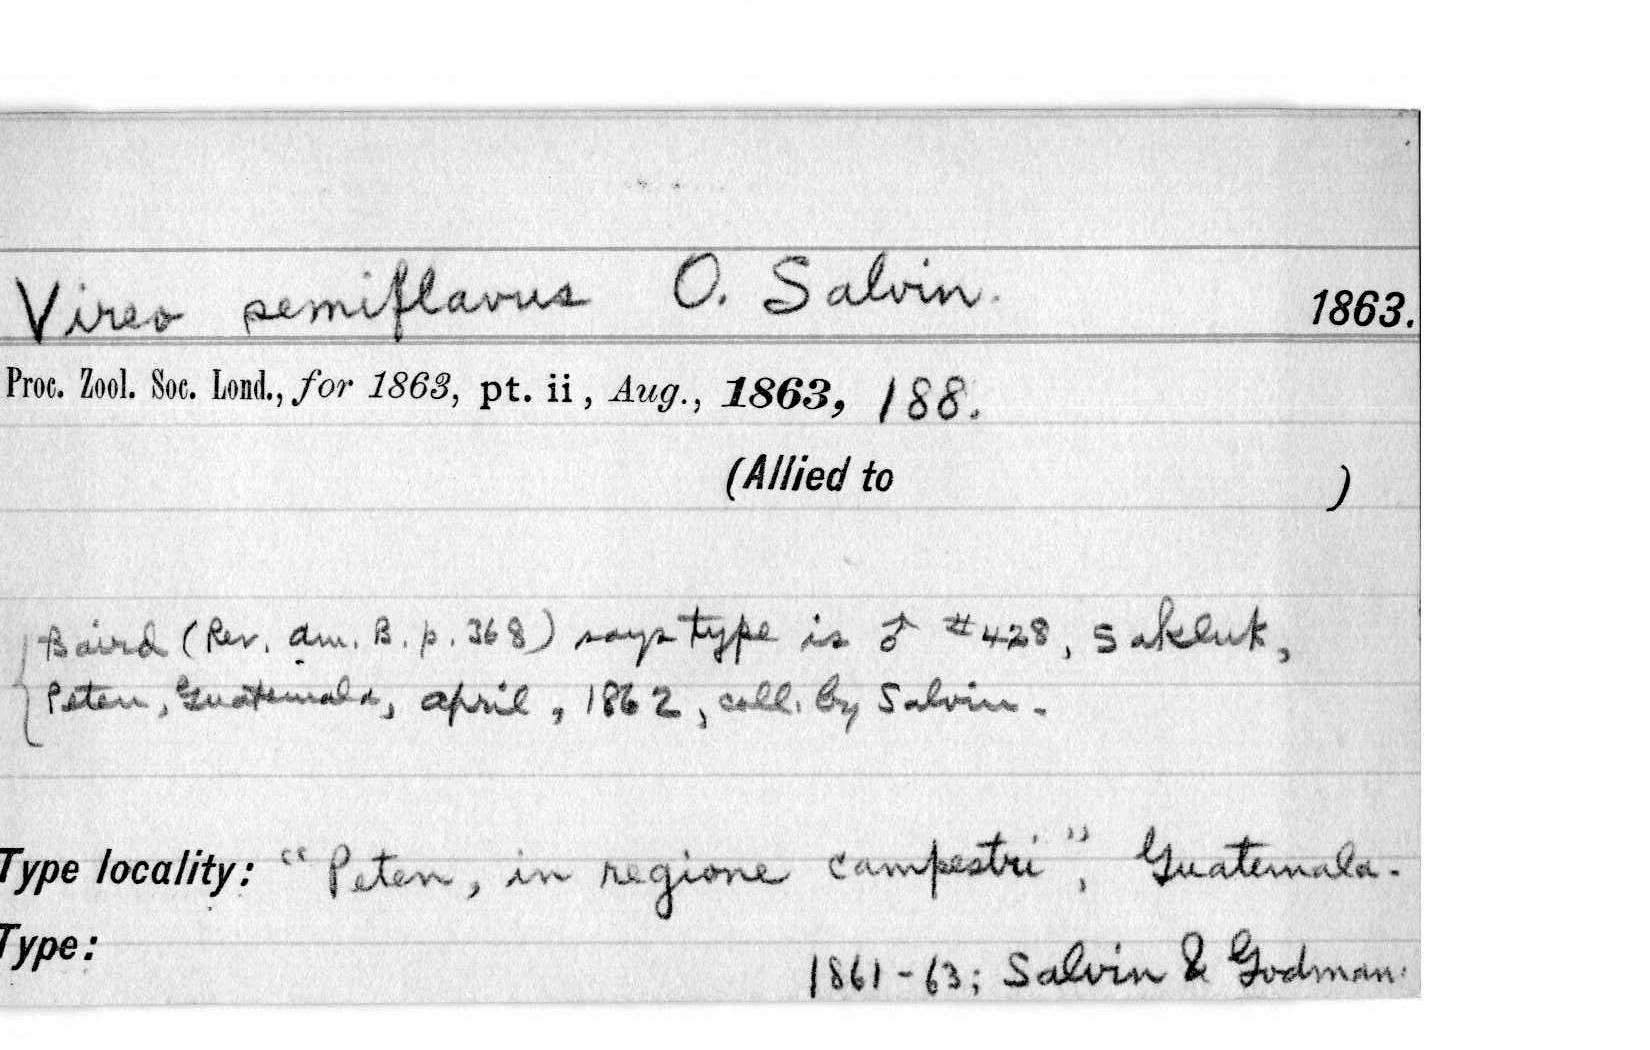 Vireo semiflavus O. Salvin. 1863.
Proc. Zool. Soc. Lond., for 1863, pt. ii, Aug., 1863, 188.
(Allied to )
Baird (Rev. Am. B. p. 368) says type is ♂ #428, Sakluk,
Peten, Guatemala, April, 1862, coll. by Salvin.
Type locality: "Peten, in regione campestri", Guatemala.
Type:
1861-63; Salvin & Godman.